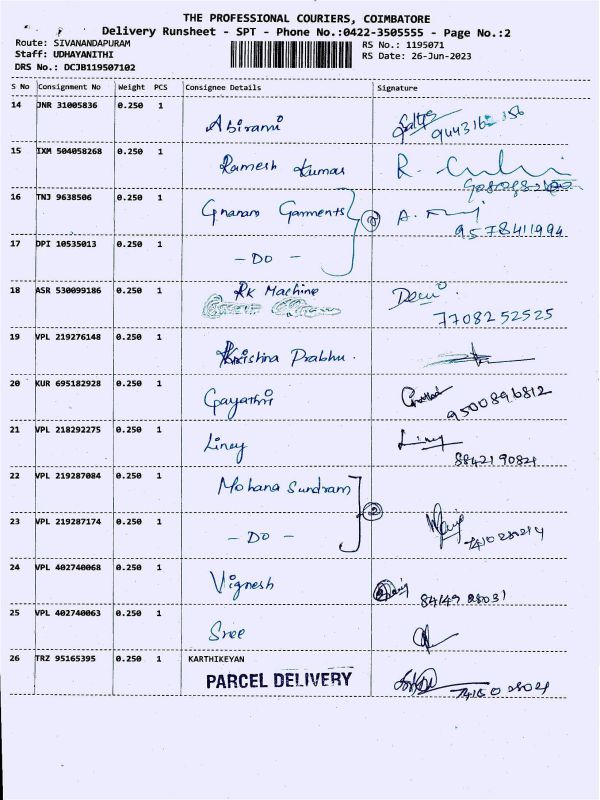 THE PROFESSIONAL COURIERS, COIMBATORE
Delivery Runsheet - SPT - Phone No.:0422-3505555 - Page No.:2
Route: SIVANANDAPURAM RS No.: 1195071
Staff: UDHAYANITHI RS Date: 26-Jun-2023
DRS No.: DCJB119507102
S No Consignment No Weight PCS Consignee Details Signature
14 JNR 31005836 0.250 1
Abirami
15 IXM 504058268 0.250 1
Ramesh Kumar
16 TNJ 9638506 0.250 1
Gnanam Garments 2 A.
9578411994
17 DPI 10535013 0.250 1
- DO -
18 ASR 530099186 0.250 1
RK Machine
7708252525
19 VPL 219276148 0.250 1
Krishna Prabhu.
20 KUR 695182928 0.250 1
Gayathri
9500896812
21 VPL 218292275 0.250 1
Liney Liney
8842190821
22 VPL 219287084 0.250 1
Mohana Sundram
23 VPL 219287174 0.250 1
- DO - 2
24 VPL 402740068 0.250 1
Vignesh
84149 28031
25 VPL 402740063 0.250 1
Sree
26 TRZ 95165395 0.250 1 KARTHIKEYAN
PARCEL DELIVERY